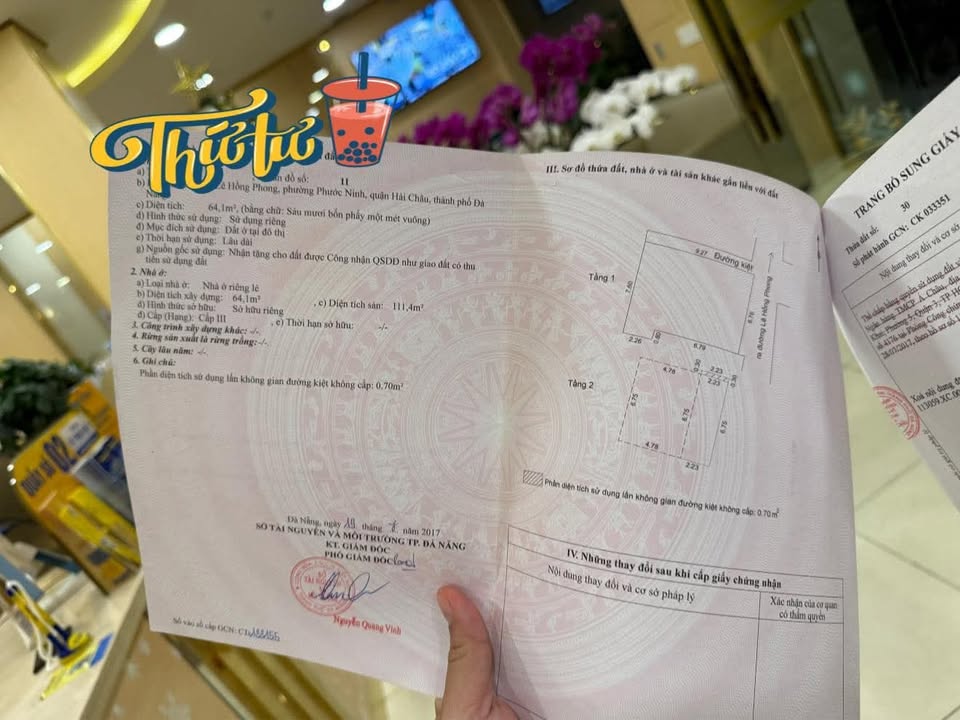 Thứ tư
11
Lê Hồng Phong, phường Phước Ninh, quận Hải Châu, thành phố Đà
c) Diện tích: 64,1m², (bằng chữ: Sáu mươi bốn phẩy một mét vuông)
d) Hình thức sử dụng: Sử dụng riêng
đ) Mục đích sử dụng: Đất ở tại đô thị
e) Thời hạn sử dụng: Lâu dài
g) Nguồn gốc sử dụng: Nhận tặng cho đất được Công nhận QSDĐ như giao đất có thu
tiền sử dụng đất
2. Nhà ở:
a) Loại nhà ở: Nhà ở riêng lẻ
b) Diện tích xây dựng: 64,1m² , c) Diện tích sàn: 111,4m²
d) Hình thức sở hữu: Sở hữu riêng
đ) Cấp (Hạng): Cấp III , e) Thời hạn sở hữu: -/-
3. Công trình xây dựng khác: -/-
4. Rừng sản xuất là rừng trồng: -/-
5. Cây lâu năm: -/-
6. Ghi chú:
Phần diện tích sử dụng lấn không gian đường kiệt không cấp: 0,70m²
Đà Nẵng, ngày 19 tháng 7 năm 2017
SỞ TÀI NGUYÊN VÀ MÔI TRƯỜNG TP. ĐÀ NẴNG
KT. GIÁM ĐỐC
PHÓ GIÁM ĐỐC
Nguyễn Quang Vinh
Số vào sổ cấp GCN:
III. Sơ đồ thửa đất, nhà ở và tài sản khác gắn liền với đất
9.27 Đường kiệt
Tầng 1
7.60
6.76
ra đường Lê Hồng Phong
2.26
0.80
6.79
4.78
0.30
2.23
2.23
0.36
Tầng 2
6.75
6.75
6.75
4.78
2.23
Phần diện tích sử dụng lấn không gian đường kiệt không cấp: 0.70m²
IV. Những thay đổi sau khi cấp giấy chứng nhận
Nội dung thay đổi và cơ sở pháp lý
Xác nhận của cơ quan
có thẩm quyền
TRANG BỔ SUNG GIẤY
Thửa đất số: 30
Số phát hành GCN: CK 033351
Nội dung thay đổi và cơ sở
Thế chấp bằng quyền sử dụng đất
hàng TMCP Á Châu, địa
Khai, Phường 5, Quận 3, TP Hồ
số 4176 tại Phòng Công chứng
28/07/2017, theo hồ sơ số
Xoá nội dung
113059.XC.00
Quầy số 02